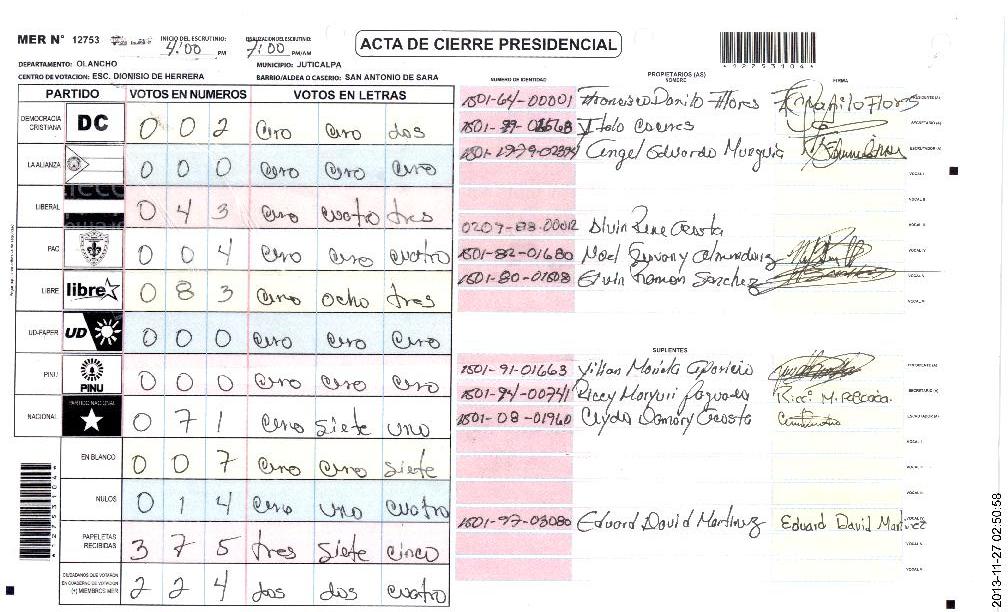 MER N° 12753 INICIO DEL ESCRUTINIO: 4:00 PM FINALIZACION ESCRUTINIO: 7:00 PM/AM
ACTA DE CIERRE PRESIDENCIAL
DEPARTAMENTO: OLANCHO MUNICIPIO: JUTICALPA
CENTRO DE VOTACION: ESC. DIONISIO DE HERRERA BARRIO/ALDEA O CASERIO: SAN ANTONIO DE SARA
PARTIDO VOTOS EN NUMEROS VOTOS EN LETRAS
DEMOCRACIA CRISTIANA DC 0 0 2 cero cero dos
LA ALIANZA 0 0 0 cero cero cero
LIBERAL 0 4 3 cero cuatro tres
PAC 0 0 4 cero cero cuatro
LIBRE libre 0 8 3 cero ocho tres
UD-FAPER UD 0 0 0 cero cero cero
PINU PINU 0 0 0 cero cero cero
NACIONAL PARTIDO NACIONAL 0 7 1 cero siete uno
EN BLANCO 0 0 7 cero cero siete
NULOS 0 1 4 cero uno cuatro
PAPELETAS RECIBIDAS 3 7 5 tres siete cinco
CIUDADANOS QUE VOTARON EN CUADERNO DE VOTACION (+) MIEMBROS MER 2 2 4 dos dos cuatro
PROPIETARIOS (AS)
NUMERO DE IDENTIDAD NOMBRE FIRMA
1501-64-00001 Francisco Danilo Flores Danilo Flores PRESIDENTE(A)
Italo SECRETARIO (A)
1501-1979-02394 Angel Eduardo Murguia ESCRUTADOR (A)
VOCAL I
VOCAL II
0209-88-00012 Alvin Rene Acosta VOCAL III
1501-82-01680 Noel VOCAL IV
1501-80-01608 Ervin Ramon Sanchez VOCAL V
VOCAL VI
SUPLENTES
1501-91-01663 PRESIDENTE (A)
1501-94-00741 SECRETARIO (A)
1501-08-01960 Acosta ESCRUTADOR (A)
VOCAL I
VOCAL II
VOCAL III
1501-97-03080 Eduard David Martinez Eduard David Martinez VOCAL IV
VOCAL V
VOCAL VI
2013-11-27 02:50:58